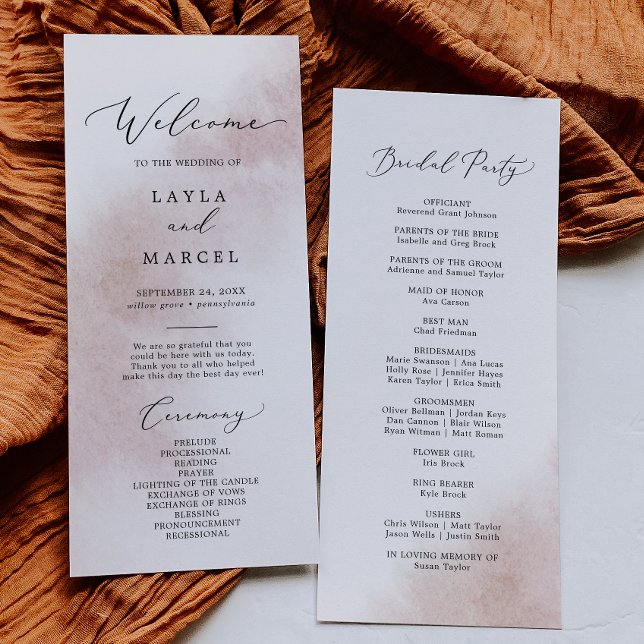 Welcome
TO THE WEDDING OF
LAYLA
and
MARCEL
SEPTEMBER 24, 20XX
willow grove • pennsylvania
We are so grateful that you
could be here with us today.
Thank you to all who helped
make this day the best day ever!
Ceremony
PRELUDE
PROCESSIONAL
READING
PRAYER
LIGHTING OF THE CANDLE
EXCHANGE OF VOWS
EXCHANGE OF RINGS
BLESSING
PRONOUNCEMENT
RECESSIONAL
Bridal Party
OFFICIANT
Reverend Grant Johnson
PARENTS OF THE BRIDE
Isabelle and Greg Brock
PARENTS OF THE GROOM
Adrienne and Samuel Taylor
MAID OF HONOR
Ava Carson
BEST MAN
Chad Friedman
BRIDESMAIDS
Marie Swanson | Ana Lucas
Holly Rose | Jennifer Hayes
Karen Taylor | Erica Smith
GROOMSMEN
Oliver Bellman | Jordan Keys
Dan Cannon | Blair Wilson
Ryan Witman | Matt Roman
FLOWER GIRL
Iris Brock
RING BEARER
Kyle Brock
USHERS
Chris Wilson | Matt Taylor
Jason Wells | Justin Smith
IN LOVING MEMORY OF
Susan Taylor